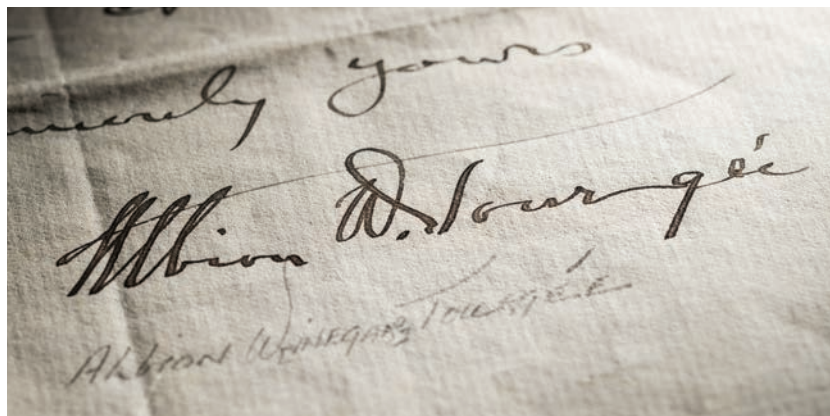 yours
Albion W. Tourgée
Albion Winegar Tourgée